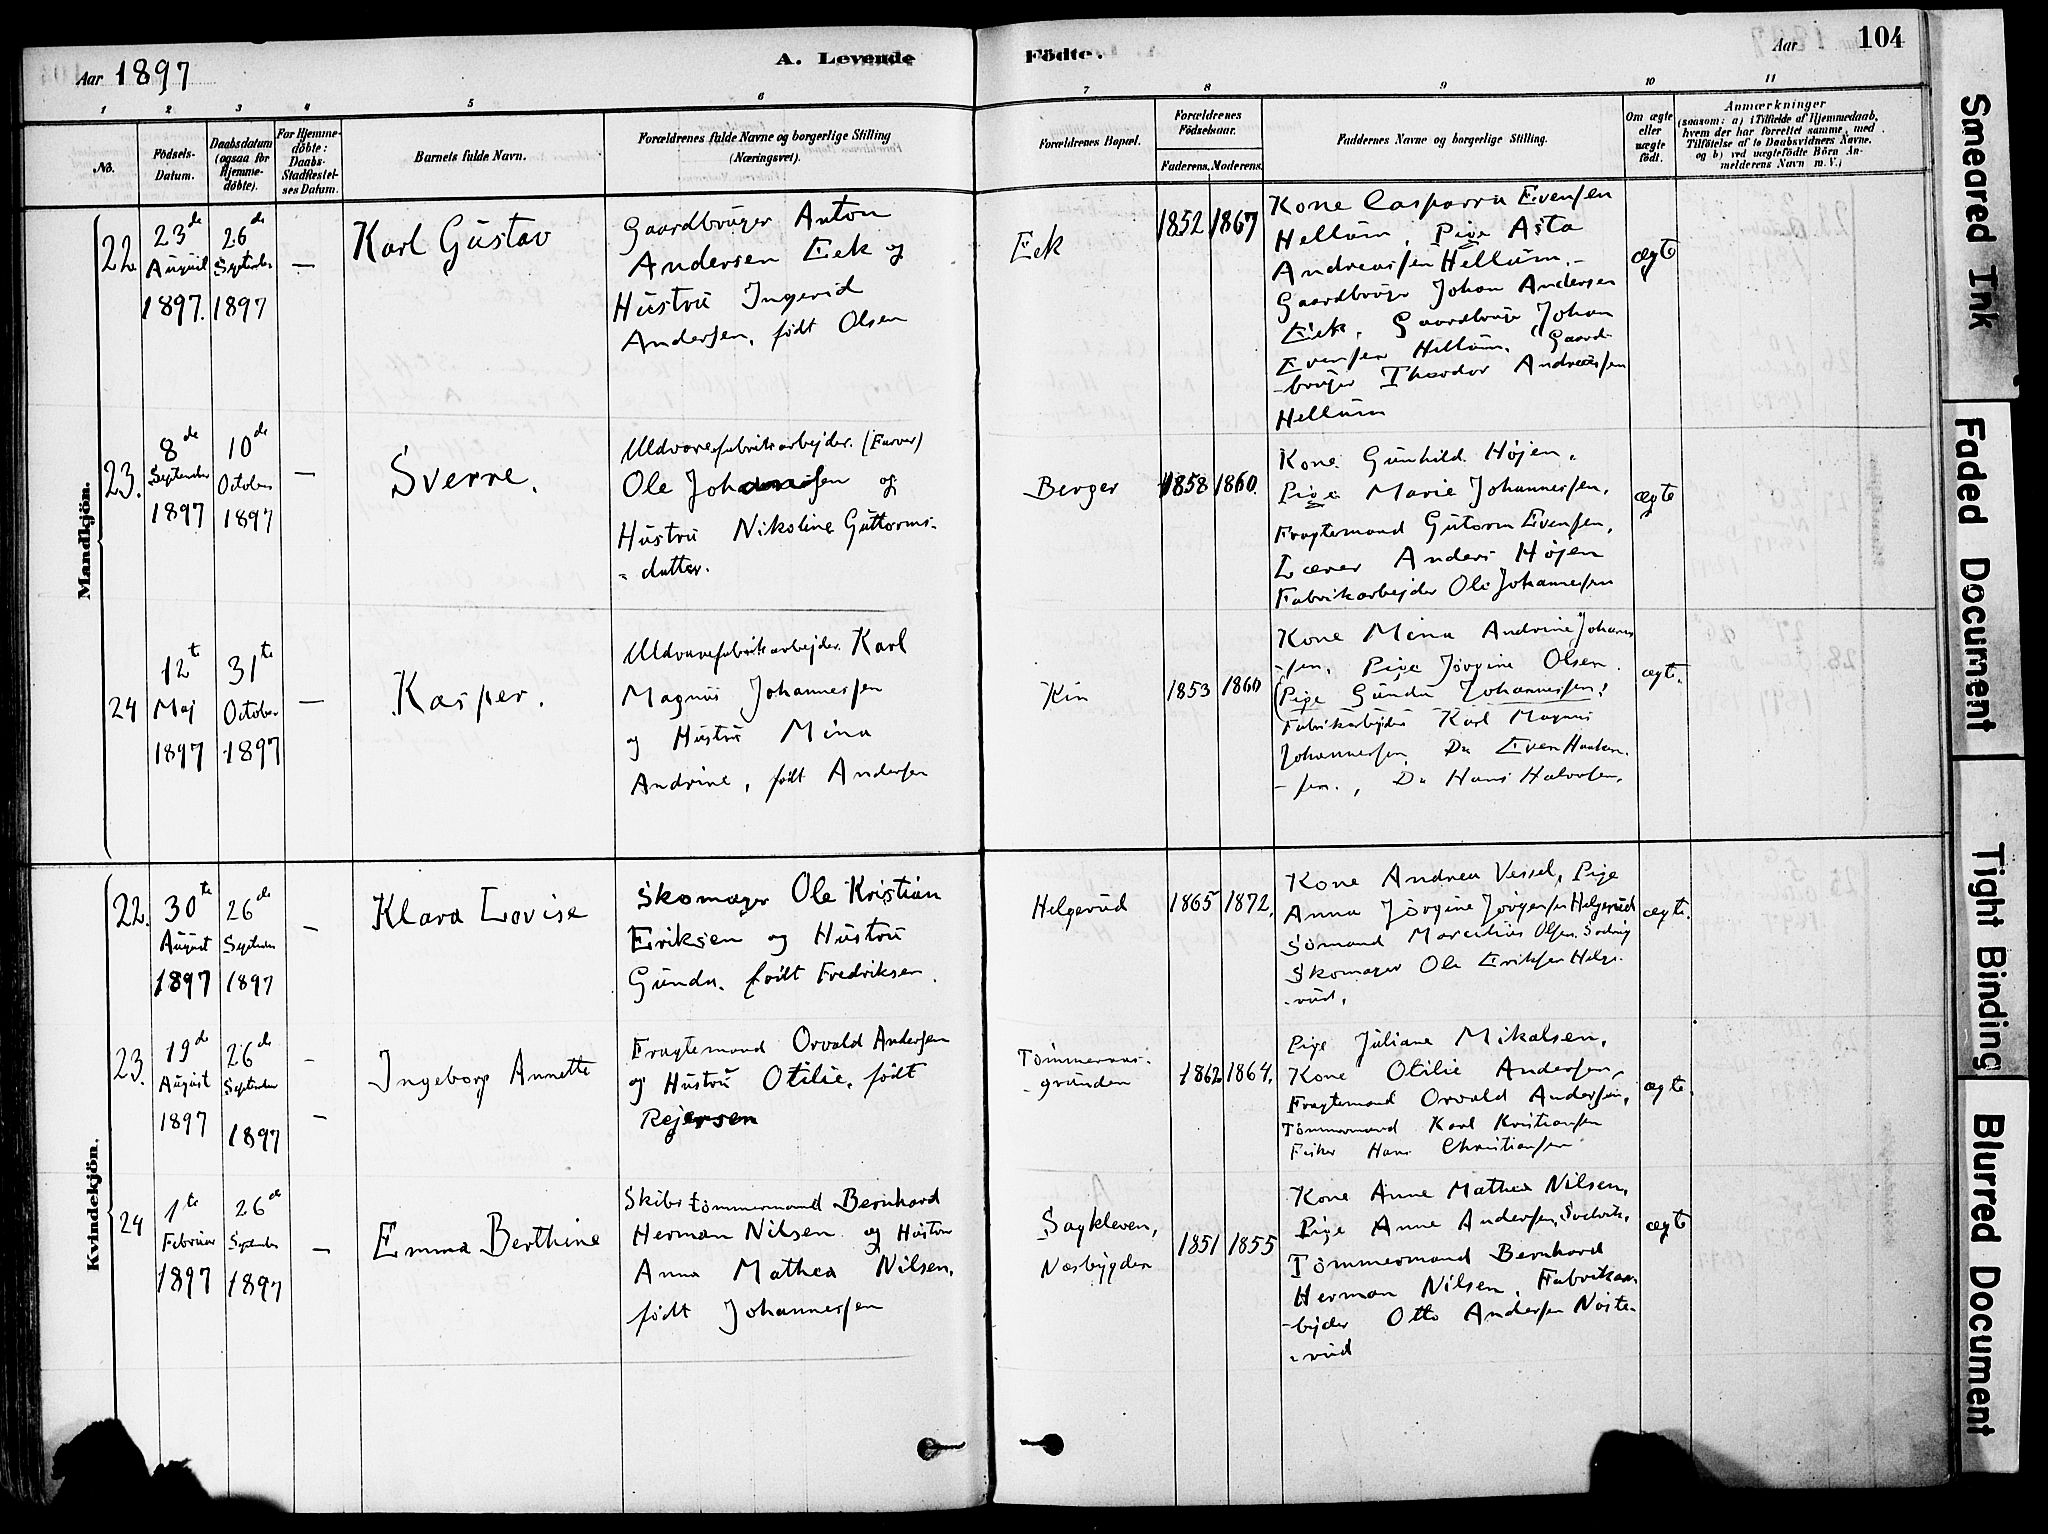 Aar 1897
A. Levende
Födte.
Aar
104
1
2
3
4
5
6
7
8
9
10
11
No.
Födsels-
Datum.
Daabsdatum
(ogsaa for
Hjemme-
döbte).
For Hjemme-
döbte:
Daabs-
Stadfæstel-
ses Datum.
Barnets fulde Navn.
Forældrenes fulde Navne og borgerlige Stilling
(Næringsvei).
Forældrenes Bopæl.
Forældrenes
Födselsaar.
Faderens.
Moderens.
Faddernes Navne og borgerlige Stilling.
Om ægte
eller
uægte
födt.
Anmærkninger
(saasom: a) i Tilfælde af Hjemmedaab,
hvem der har forrettet samme, med
Tilföielse af to Daabsvidners Navne,
og b) ved uægtefödte Börn An-
melderens Navn m. V.)
Mandkjön.
22
23de
August
1897.
26de
September
1897
—
Karl Gustav
Gaardbruger Anton
Andersen Eek og
Hustru Ingerid
Andersen, født Olsen
Eek
1852
1867
Kone Casparra Evensen
Hellum, Pige Asta
Andreassen Hellum,
Gaardbruger Johan Andersen
Eek, Gaardbruger Johan
Evensen Hellum, Gaard-
-bruger Theodor Andreassen
Hellum
ægte
23.
8de
September
1897
10de
October
1897
—
Sverre.
Uldvarefabrikarbejder. (Farver)
Ole Johannesen og
Hustru Nikoline Guttorms-
- datter.
Berger
1858
1860.
Kone Gunhild Højen,
Pige Marie Johannessen,
Fragtemand Gutorm Evensen,
Lærer Anders Højen
Fabrikarbejder Ole Johannessen
ægte
24
12te
Maj
1897
31te
October
1897
—
Kasper.
Uldvarefabrikarbejder Karl
Magnus Johannessen
og Hustru Mina
Andrine, født Andersen
Kin
1853
1860
Kone Mina Andrine Johannes
-sen, Pige Jørgine Olsen
(Pige Gunda Johannessen,
Fabrikarbejder Karl Magnus
Johannessen, Do Even Haaken-
-sen, Do Hans Halvorsen,
ægt.
Kvindekjön.
22.
30te
August
1897
26de
September
1897
—
Klara Lovise
Skomager Ole Kristian
Eriksen og Hustru
Gunda, født Fredriksen.
Helgerud
1865
1872.
Kone Andrea Vessel, Pige
Anna Jørgine Jørgensen Helgerud
Sømand Marcelius Olsen,
Skomager Ole Eriksen Helge-
-rud,
ægte.
23.
19de
August
1897
26de
September
1897
—
Ingeborg Annette
Fragtemand Orvald Andersen
og Hustru Otilie, født
Rejersen
Tømmeraas-
-grunden
1862
1864.
Pige Juliane Mikalsen,
Kone Otilie Andersen,
Fragtemand Orvald Andersen,
Tømmermand Karl Kristiansen
Fisker Hans Christiansen
ægte.
24
1te
Februar
1897
26de
September
1897
—
Emma Berthine
Skibstømmermand Bernhard
Herman Nilsen og Hustru
Anna Mathea Nilsen,
født Johannessen
Sagkleven,
Nesbygden
1851
1855
Kone Anne Mathea Nilsen,
Pige Anne Andersen, Svelvik,
Tømmermand Bernhard
Herman Nilsen, Fabrikar-
-bejder Otto Andersen Nøste-
-rud
ægte
Smeared Ink
Faded Document
Tight Binding
Blurred Document